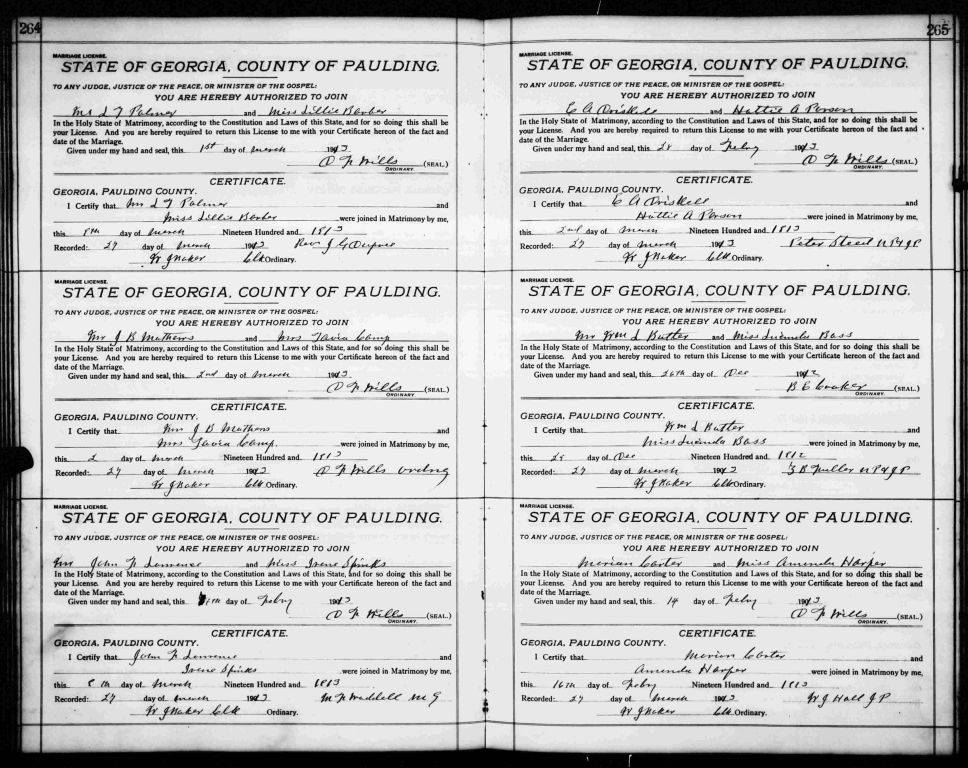 264
MARRIAGE LICENSE.
STATE OF GEORGIA, COUNTY OF PAULDING.
TO ANY JUDGE, JUSTICE OF THE PEACE, OR MINISTER OF THE GOSPEL:
YOU ARE HEREBY AUTHORIZED TO JOIN
Mr L T Palmer and Miss Lillie Barber
In the Holy State of Matrimony, according to the Constitution and Laws of this State, and for so doing this shall be
your License. And you are hereby required to return this License to me with your Certificate hereon of the fact and
date of the Marriage.
Given under my hand and seal, this 1st day of March 1913
Wills (SEAL.)
ORDINARY.
CERTIFICATE.
GEORGIA, PAULDING COUNTY.
I Certify that Mr L T Palmer and
Miss Lillie Barber were joined in Matrimony by me,
this 8th day of March Nineteen Hundred and 1913
Recorded: 27 day of March 1913 Rev J G
W J Baker Clk Ordinary.
MARRIAGE LICENSE.
STATE OF GEORGIA, COUNTY OF PAULDING.
TO ANY JUDGE, JUSTICE OF THE PEACE, OR MINISTER OF THE GOSPEL:
YOU ARE HEREBY AUTHORIZED TO JOIN
Mr J B Mathews and Mrs Tavia Camp
In the Holy State of Matrimony, according to the Constitution and Laws of this State, and for so doing this shall be
your License. And you are hereby required to return this License to me with your Certificate hereon of the fact and
date of the Marriage.
Given under my hand and seal, this 2nd day of March 1913
Wills (SEAL.)
ORDINARY.
CERTIFICATE.
GEORGIA, PAULDING COUNTY.
I Certify that Mr J B Mathews and
Mrs Tavia Camp were joined in Matrimony by me,
this 2 day of March Nineteen Hundred and 1913
Recorded: 27 day of March 1913 Wills
W J Baker Clk Ordinary.
MARRIAGE LICENSE.
STATE OF GEORGIA, COUNTY OF PAULDING.
TO ANY JUDGE, JUSTICE OF THE PEACE, OR MINISTER OF THE GOSPEL:
YOU ARE HEREBY AUTHORIZED TO JOIN
Mr John and Miss Irene Spinks
In the Holy State of Matrimony, according to the Constitution and Laws of this State, and for so doing this shall be
your License. And you are hereby required to return this License to me with your Certificate hereon of the fact and
date of the Marriage.
Given under my hand and seal, this day of Feby 1913
Wills (SEAL.)
ORDINARY.
CERTIFICATE.
GEORGIA, PAULDING COUNTY.
I Certify that John and
Irene Spinks were joined in Matrimony by me,
this 8th day of March Nineteen Hundred and 1913
Recorded: 27 day of March 1913 M G
W J Baker Clk Ordinary.
265
MARRIAGE LICENSE.
STATE OF GEORGIA, COUNTY OF PAULDING.
TO ANY JUDGE, JUSTICE OF THE PEACE, OR MINISTER OF THE GOSPEL:
YOU ARE HEREBY AUTHORIZED TO JOIN
E A Driskell and Hattie A Person
In the Holy State of Matrimony, according to the Constitution and Laws of this State, and for so doing this shall be
your License. And you are hereby required to return this License to me with your Certificate hereon of the fact and
date of the Marriage.
Given under my hand and seal, this 28 day of Feby 1913
Wills (SEAL.)
ORDINARY.
CERTIFICATE.
GEORGIA, PAULDING COUNTY.
I Certify that E A Driskell and
Hattie A Person were joined in Matrimony by me,
this 2nd day of March Nineteen Hundred and 1913
Recorded: 27 day of March 1913 Peter Steed N P & J P
W J Baker Clk Ordinary.
MARRIAGE LICENSE.
STATE OF GEORGIA, COUNTY OF PAULDING.
TO ANY JUDGE, JUSTICE OF THE PEACE, OR MINISTER OF THE GOSPEL:
YOU ARE HEREBY AUTHORIZED TO JOIN
Mr Wm L Butler and Miss Lucinda Bass
In the Holy State of Matrimony, according to the Constitution and Laws of this State, and for so doing this shall be
your License. And you are hereby required to return this License to me with your Certificate hereon of the fact and
date of the Marriage.
Given under my hand and seal, this 26th day of Dec 1912
(SEAL.)
ORDINARY.
CERTIFICATE.
GEORGIA, PAULDING COUNTY.
I Certify that Wm L Butler and
Miss Lucinda Bass were joined in Matrimony by me,
this 28 day of Dec Nineteen Hundred and 1912
Recorded: 27 day of March 1913 Fuller N P & J P
W J Baker Clk Ordinary.
MARRIAGE LICENSE.
STATE OF GEORGIA, COUNTY OF PAULDING.
TO ANY JUDGE, JUSTICE OF THE PEACE, OR MINISTER OF THE GOSPEL:
YOU ARE HEREBY AUTHORIZED TO JOIN
Marion Carter and Miss Amanda Harper
In the Holy State of Matrimony, according to the Constitution and Laws of this State, and for so doing this shall be
your License. And you are hereby required to return this License to me with your Certificate hereon of the fact and
date of the Marriage.
Given under my hand and seal, this 14 day of Feby 1913
Wills (SEAL.)
ORDINARY.
CERTIFICATE.
GEORGIA, PAULDING COUNTY.
I Certify that Marion Carter and
Amanda Harper were joined in Matrimony by me,
this 16th day of Feby Nineteen Hundred and 1913
Recorded: 27 day of March 1913 W J Hall J P
W J Baker Clk Ordinary.